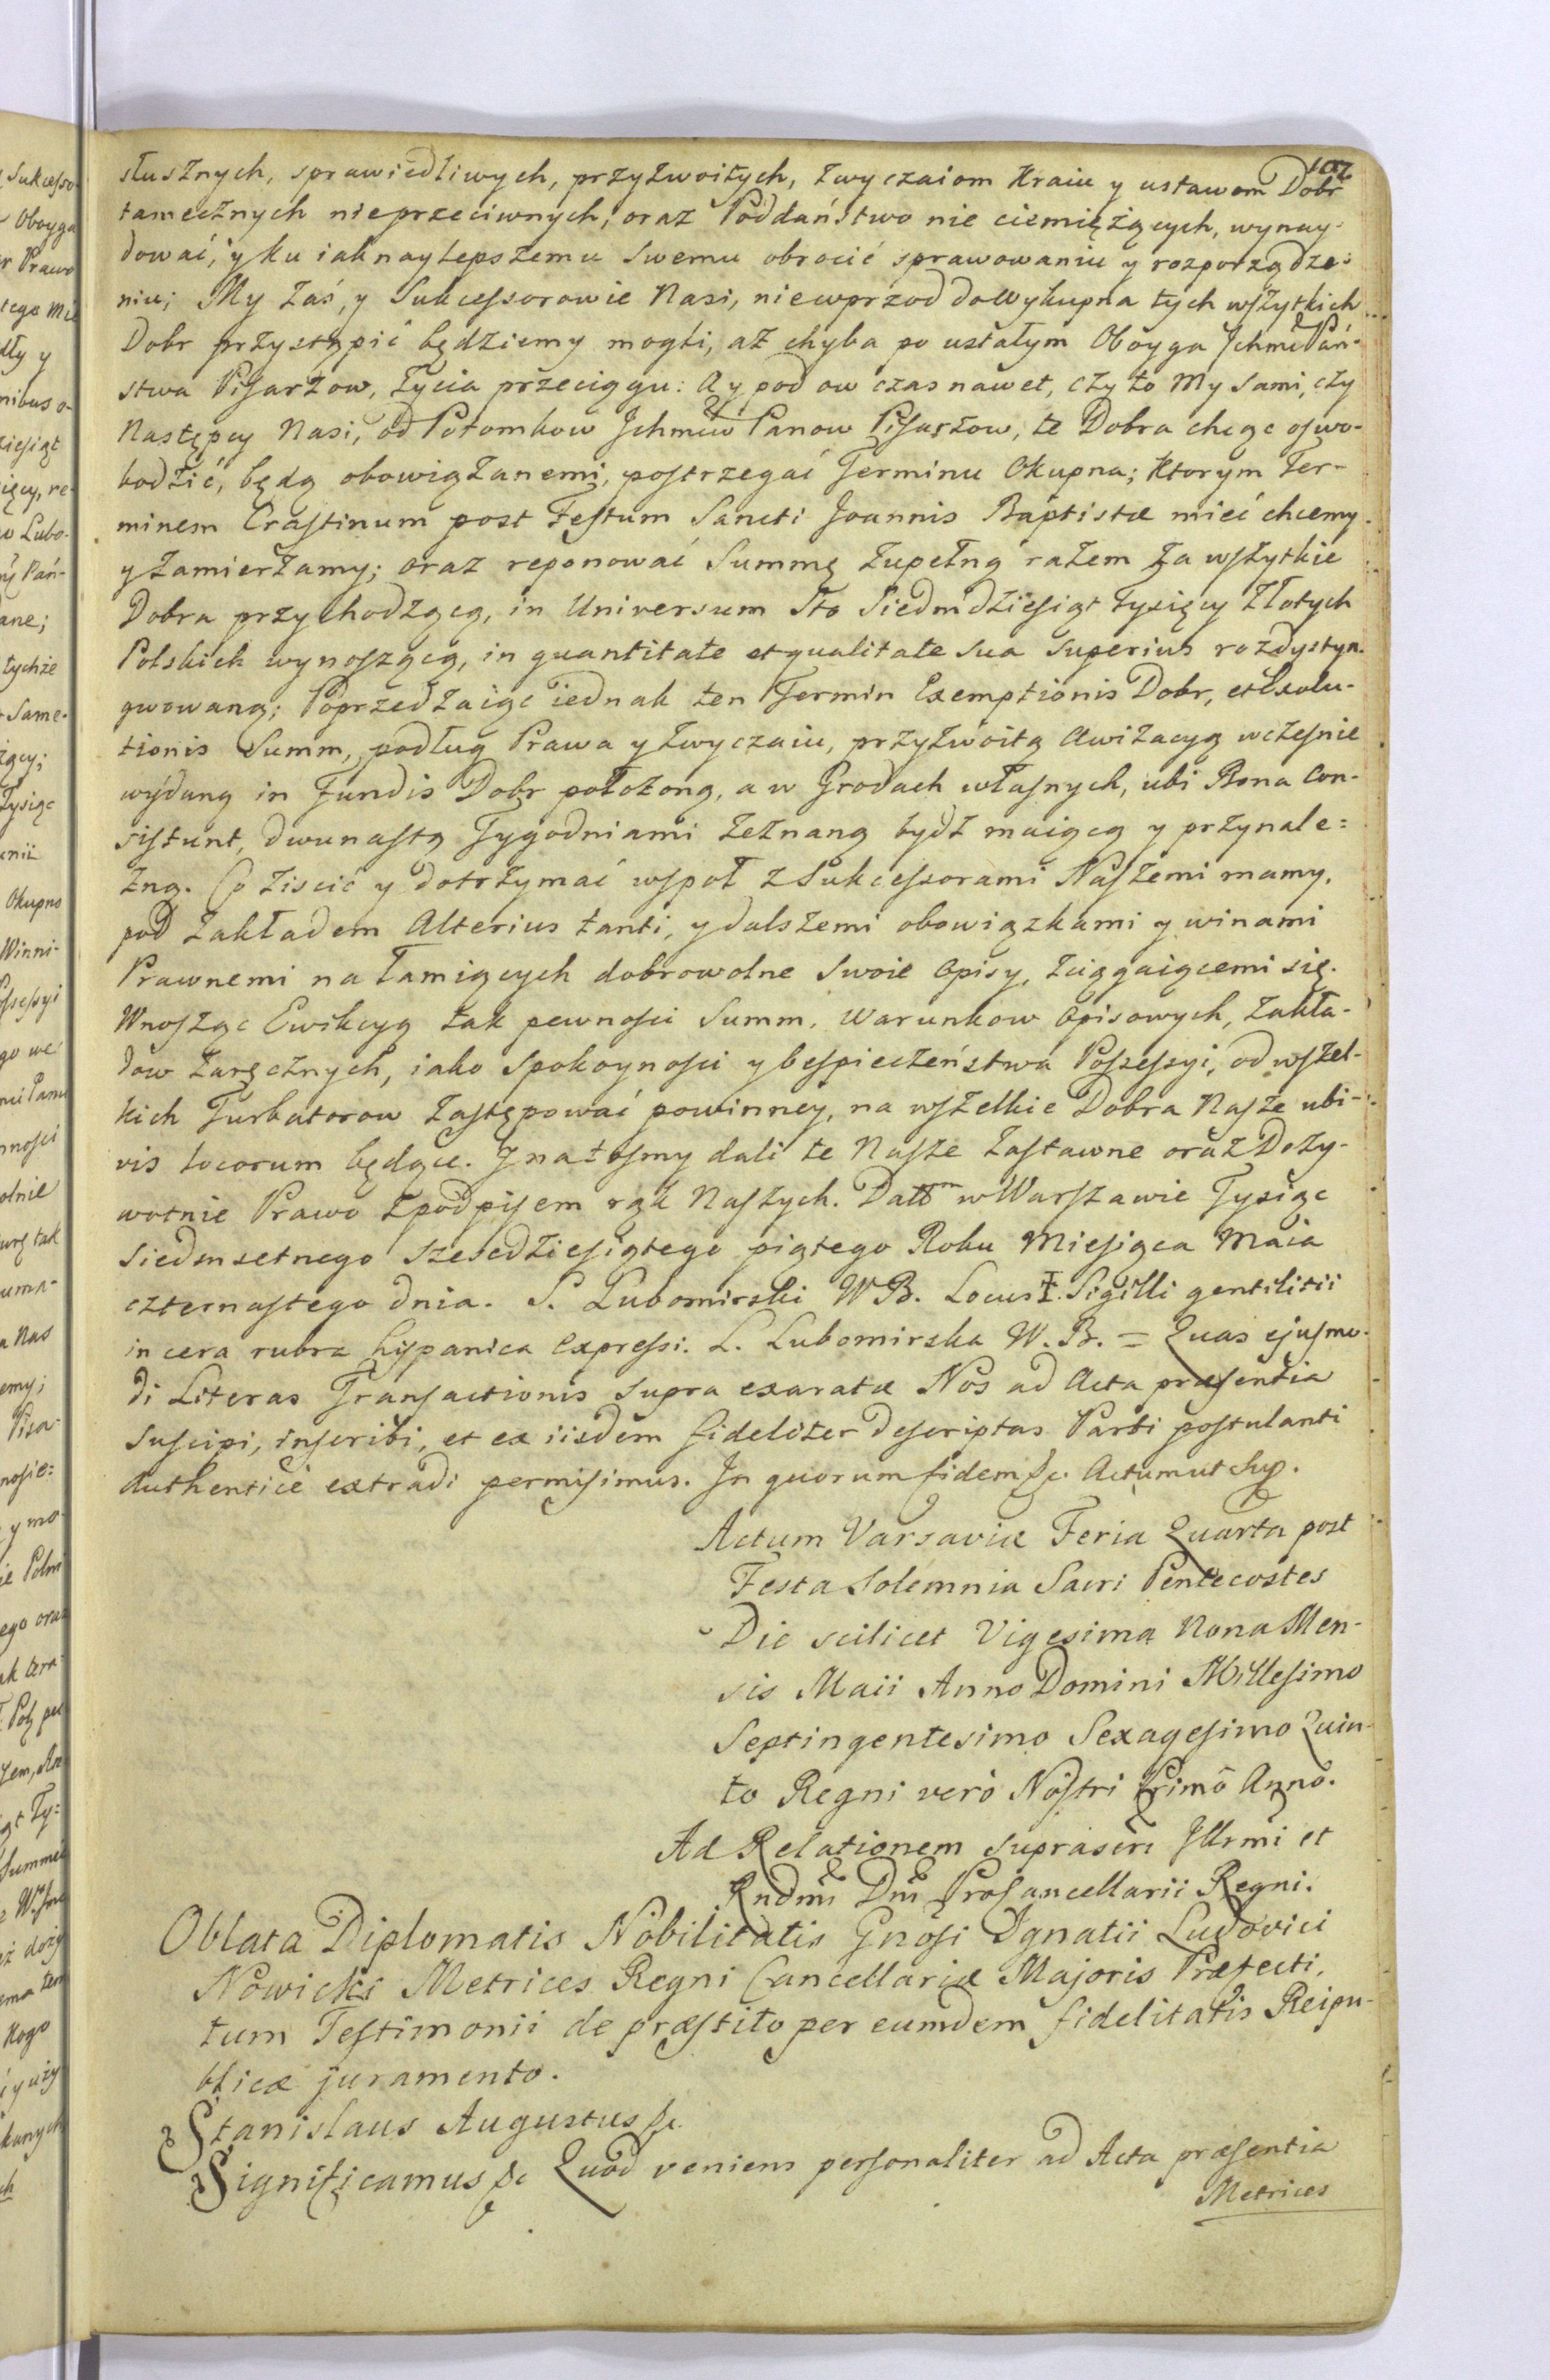 102
słusznych, sprawiedliwych, przyzwoitych, zwyczaiom Kraiu y ustawom Dobr
tamecznych nieprzeciwnych, oraz Poddaństwo nie ciemiężących, wynay-
dować, y ku iaknaylepszemu Swemu obrocić sprawowaniu y rozporządze:
niu; My zaś, y Sukcessorowie Nasi, niewprzod do wykupna tych wszytkich
Dobr przystąpić będziemy mogli, aż chyba po ustałym Oboyga Jchmć Pań-
stwa Pisarzow, życia przeciągu: A y pod ow czas nawet, czy to My sami, czy
Następcy Nasi, od Potomkow Jchmciow Panow Pisarzow, te Dobra chcąc oswo-
bodzić, będą obowiązanemi, postrzegać Terminu Okupna; Ktorym Ter-
minem Crastinum post Festum Sancti Joannis Baptistæ mieć chcemy
y zamierzamy; oraz reponować Summę zupełną razem za wszytkie
Dobra przychodzącą, in Universum Sto Siedmdziesiąt Tysięcy Złotych
Polskich wynoszącą, in quantitate et qualitate sua superius rozdystyn-
gwowaną; Poprzedzaiąc iednak ten Termin Exemptionis Dobr, et Exolu-
tionis Summ, podług Prawa y zwyczaiu, przyzwoitą Awizacyą wcześnie
wydaną in Fundis Dobr położoną, a w Grodach własnych, ubi Bona Con-
sistunt, dwunastą Tygodniami zeznaną bydź maiącą y przynale:
żną. Co ziscić y dotrzymać wspoł z Sukcessorami Naszemi mamy,
pod zakładem Alterius tanti, y dalszemi obowiązkami y winami
Prawnemi na łamiących dobrowolne Swoie Opisy, zciągaiącemi się.
Wnosząc Ewikcyą tak pewności Summ, Warunkow Opisowych, zakła-
dow zaręcznych, iako Spokoyności y bespieczeństwa Possessyi, od wszel-
kich Turbatorow zastępować powinney, na wszelkie Dobra Nasze ubi-
vis locorum będące. Jnatośmy dali te Nasze zastawne oraz Doży-
wotnie Prawo z podpisem rąk Naszych. Datt͞m w Warszawie Tysiąc
Siedmsetnego Szescdziesiątego piątego Roku Miesiąca Maia
czternastego dnia. S. Lubomirski W.B. Locus ‡ Sigilli gentilitii
in cera rubra hypanica expressi. L. Lubomirska W.B. = Quas ejusmo-
di Literas Transactionis supra exaratæ Nos ad Acta præsentia
suscipi, inscribi, et ex iisdem fideliter descriptas Parti postulanti
authenticè extradi permisimus. Jn quorum fidem &c. Actum ut Sup.
Actum Varsaviæ Feria Quarta post
Festa Solemnia Sacri Pentecostes
Die scilicet Vigesima Nona Men-
sis Maii Anno Domini Millesimo
Septingentesimo Sexagesimo Quin-
to Regni verò Nostri Primō Anno.
Ad Relationem suprascri Jllrmi et
Rndm̃i Dñi ProCancellarii Regni.
Oblata Diplomatis Nobilitatis Gnosi Ignatii Ludovici
Nowicki Metrices Regni Cancellariæ Majoris Præfecti,
tum Testimonii de præstito per eumdem fidelitatis Reipu-
blicæ juramento.
Stanislaus Augustus &c.
Significamus &c Quod veniens personaliter ad Acta præsentia
Metrices